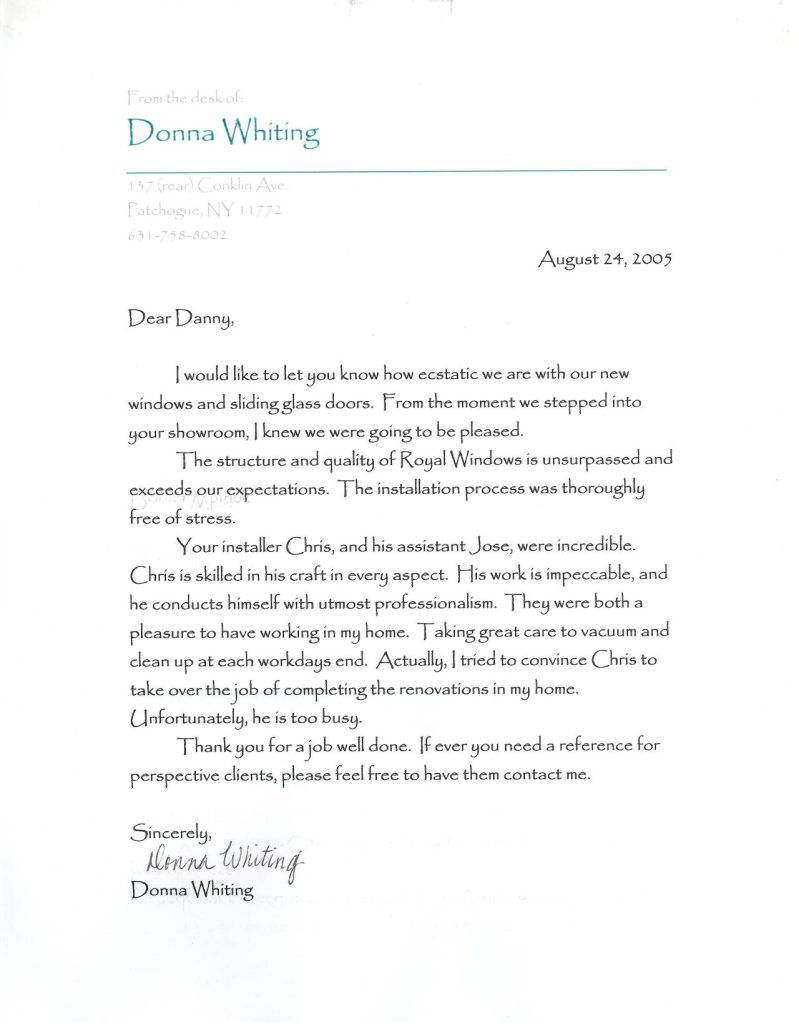 From the desk of:
Donna Whiting
137 (rear) Conklin Ave.
Patchogue, NY 11772
631-758-8002
August 24, 2005
Dear Danny,
I would like to let you know how ecstatic we are with our new
windows and sliding glass doors. From the moment we stepped into
your showroom, I knew we were going to be pleased.
The structure and quality of Royal Windows is unsurpassed and
exceeds our expectations. The installation process was thoroughly
free of stress.
Your installer Chris, and his assistant Jose, were incredible.
Chris is skilled in his craft in every aspect. His work is impeccable, and
he conducts himself with utmost professionalism. They were both a
pleasure to have working in my home. Taking great care to vacuum and
clean up at each workdays end. Actually, I tried to convince Chris to
take over the job of completing the renovations in my home.
Unfortunately, he is too busy.
Thank you for a job well done. If ever you need a reference for
perspective clients, please feel free to have them contact me.
Sincerely,
Donna Whiting
Donna Whiting